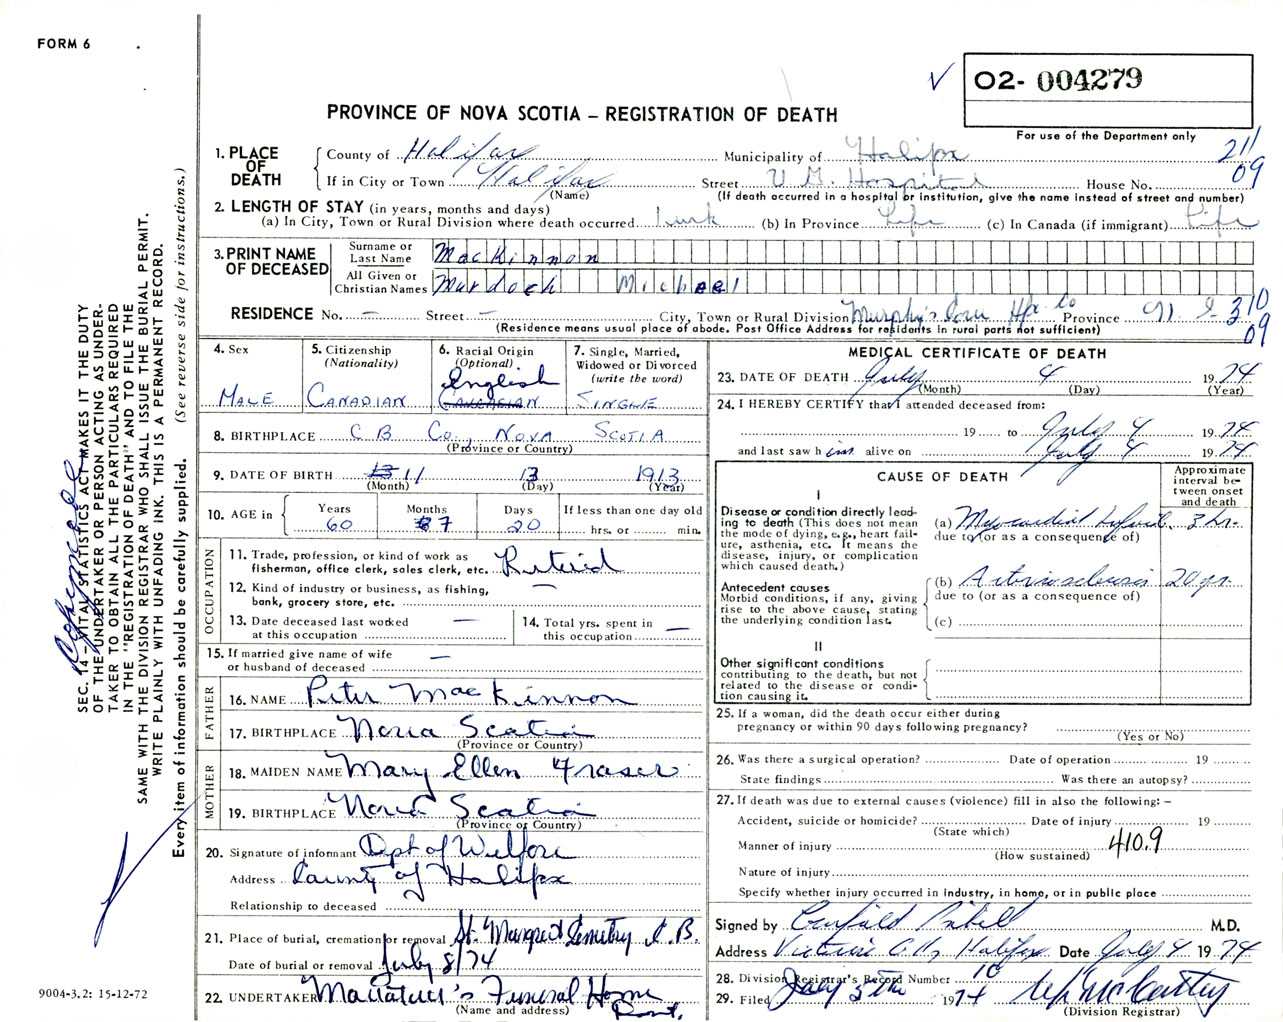 FORM 6
O2- 004279
PROVINCE OF NOVA SCOTIA – REGISTRATION OF DEATH
For use of the Department only
1. PLACE OF DEATH
County of Halifax Municipality of Halifax 211
If in City or Town Halifax Street V. G. Hospital House No. 09
(Name) (If death occurred in a hospital or institution, give the name instead of street and number)
2. LENGTH OF STAY (in years, months and days)
(a) In City, Town or Rural Division where death occurred (b) In Province Life (c) In Canada (if immigrant) Life
3. PRINT NAME OF DECEASED
Surname or Last Name MacKinnon
All Given or Christian Names Murdoch Michael
RESIDENCE No. – Street – City, Town or Rural Division Murphy's Cove Hfx Co Province N. S 310
(Residence means usual place of abode. Post Office Address for residents in rural parts not sufficient) 09
4. Sex
MALE
5. Citizenship
(Nationality)
CANADIAN
6. Racial Origin
(Optional)
English
CAUCASIAN
7. Single, Married, Widowed or Divorced
(write the word)
SINGLE
8. BIRTHPLACE C B Co., NOVA SCOTIA
(Province or Country)
9. DATE OF BIRTH 13 11 13 1913
(Month) (Day) (Year)
10. AGE in Years Months Days If less than one day old
60 7 20 hrs. or min.
OCCUPATION
11. Trade, profession, or kind of work as fisherman, office clerk, sales clerk, etc. Retired
12. Kind of industry or business, as fishing, bank, grocery store, etc. –
13. Date deceased last worked at this occupation –
14. Total yrs. spent in this occupation –
15. If married give name of wife or husband of deceased –
FATHER
16. NAME Peter MacKinnon
17. BIRTHPLACE Nova Scotia
(Province or Country)
MOTHER
18. MAIDEN NAME Mary Ellen Fraser
19. BIRTHPLACE Nova Scotia
(Province or Country)
20. Signature of informant Dept of Welfare
Address County of Halifax
Relationship to deceased
21. Place of burial, cremation or removal St. Margaret Cemetry C. B.
Date of burial or removal July 8/74
22. UNDERTAKER Funeral Home
(Name and address)
MEDICAL CERTIFICATE OF DEATH
23. DATE OF DEATH July 4 1974
(Month) (Day) (Year)
24. I HEREBY CERTIFY that I attended deceased from:
19 to July 4 1974
and last saw him alive on July 4 1974
CAUSE OF DEATH
Approximate interval between onset and death
I
Disease or condition directly leading to death (This does not mean the mode of dying, e.g., heart failure, asthenia, etc. It means the disease, injury, or complication which caused death.)
(a) Myocardial Infarct. 3 hr.
due to (or as a consequence of)
Antecedent causes
Morbid conditions, if any, giving rise to the above cause, stating the underlying condition last.
(b) Arteriosclerosis 20 yr
due to (or as a consequence of)
(c)
II
Other significant conditions contributing to the death, but not related to the disease or condition causing it.
25. If a woman, did the death occur either during pregnancy or within 90 days following pregnancy?
(Yes or No)
26. Was there a surgical operation? Date of operation 19
State findings Was there an autopsy?
27. If death was due to external causes (violence) fill in also the following: –
Accident, suicide or homicide? Date of injury 19
(State which)
Manner of injury 410.9
(How sustained)
Nature of injury
Specify whether injury occurred in industry, in home, or in public place
Signed by M.D.
Address Halifax Date July 4 1974
28. Division Registrar's Record Number 10
29. Filed July 5th 1974
(Division Registrar)
SEC. 14 – VITAL STATISTICS ACT MAKES IT THE DUTY
OF THE UNDERTAKER OR PERSON ACTING AS UNDERTAKER
TO OBTAIN ALL THE PARTICULARS REQUIRED
IN THE "REGISTRATION OF DEATH" AND TO FILE THE
SAME WITH THE DIVISION REGISTRAR WHO SHALL ISSUE THE BURIAL PERMIT.
WRITE PLAINLY WITH UNFADING INK. THIS IS A PERMANENT RECORD.
Every item of information should be carefully supplied. (See reverse side for instructions.)
9004-3.2: 15-12-72